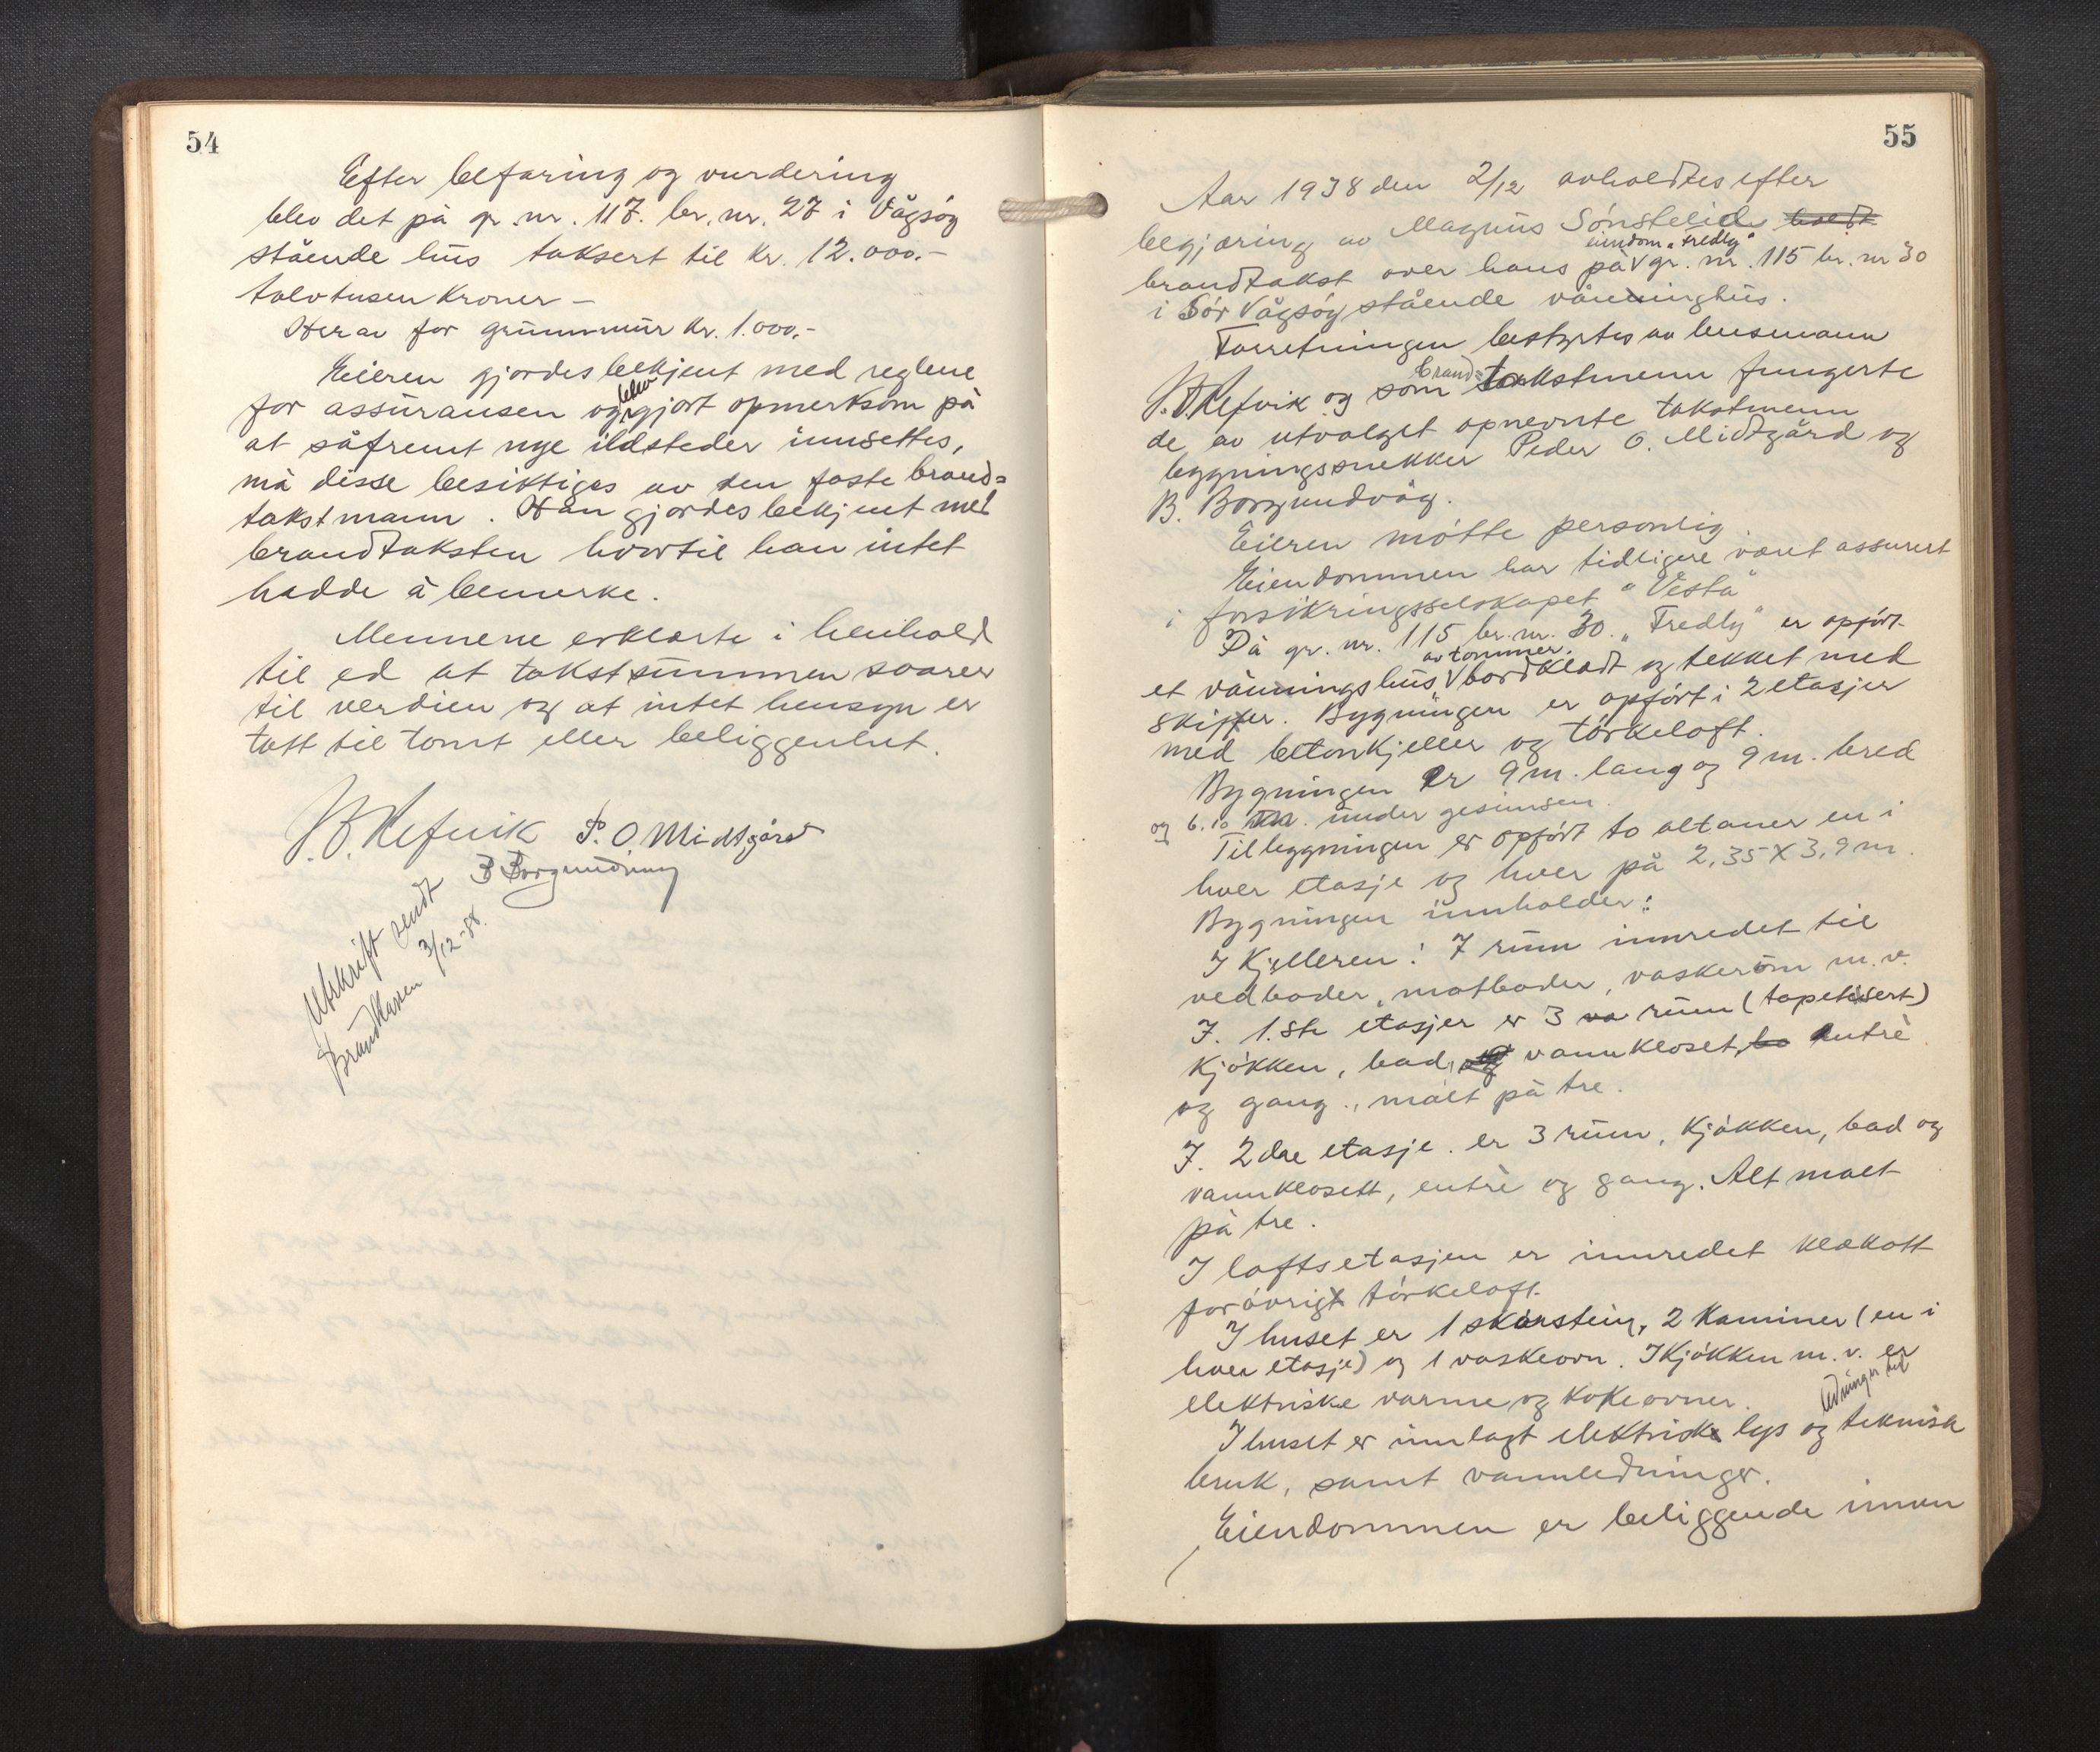 54
Efter befaring og vurdering
blev det på gr. nr. 117. br. nr. 27 i Vågsøy
stående hus taksert til kr. 12.000.-
tolvtusen kroner -
Herav for grunnmur kr. 1.000.-
Eieren gjordes bekjent med reglene
for assuransen og blev gjort opmerksom på
at såfremt nye ildsteder innsettes,
må disse besiktiges av den faste brand=
takstmann. Han gjordes bekjent med
brandtaksten hvortil han intet
hadde å bemerke.
Mennene erklærte i henhold
til ed at takstsummen svarer
til verdien og at intet hensyn er
tatt til tomt eller beliggenhet.
J. B. Refvik P. O Midtgård
B Borgundvåg
Utskrift sendt
Brandkassen 3/12-38.
55
Aar 1938 den 2/12 avholdtes efter
begjæring av Magnus Sønstelid holdt
eiendom „Fredly"
brandtakst over hans på gr. nr. 115 br. nr 30
i Sør Vågsøy stående våninghus.
Forretningen bestyrtes av lensmann
J. B. Refvik og som brand= takstmenn fungerte
de av utvalget opnevnte takstmenn
bygningssnekker Peder O. Midtgård og
B. Borgundvåg.
Eieren møtte personlig.
Eiendommen har tidligere vært assurert
i forsikringsselskapet "Vesta"
På gr. nr. 115 br. nr. 30. „Fredly" er opført
av tømmer.
et våningshus, bordklædt og tekket med
skiffer. Bygningen er opført i 2 etasjer
med betonkjeller og tørkeloft.
Bygningen er 9 m. lang og 9 m. bred
og 6.10 m. under gesimsen.
Til bygningen er opført to altaner en i
hver etasje og hver på 2,35 X 3,9 m.
Bygningen innholder:
I Kjelleren: 7 rum innredet til
vedboder, matboder, vaskerom m.v.
I. 1.ste etasjer er 3 va rum (tapetsert)
kjøkken, bad, og vannkloset, to entrè
og gang., malt på tre.
I. 2dre etasje. er 3 rum, kjøkken, bad og
vannklosett, entrè og gang. Alt malt
på tre.
I loftsetasjen er innredet klækott
forøvrigt tørkeloft.
I huset er 1 skorstein, 2 kaminer (en i
hver etasje) og 1 vaskeovn. I kjøkken m. v. er
elektriske varme og kokeovner.
ledninger til
I huset er innlagt elektrisk lys og teknisk
bruk, samt vannledninger.
Eiendommen er beliggende innen